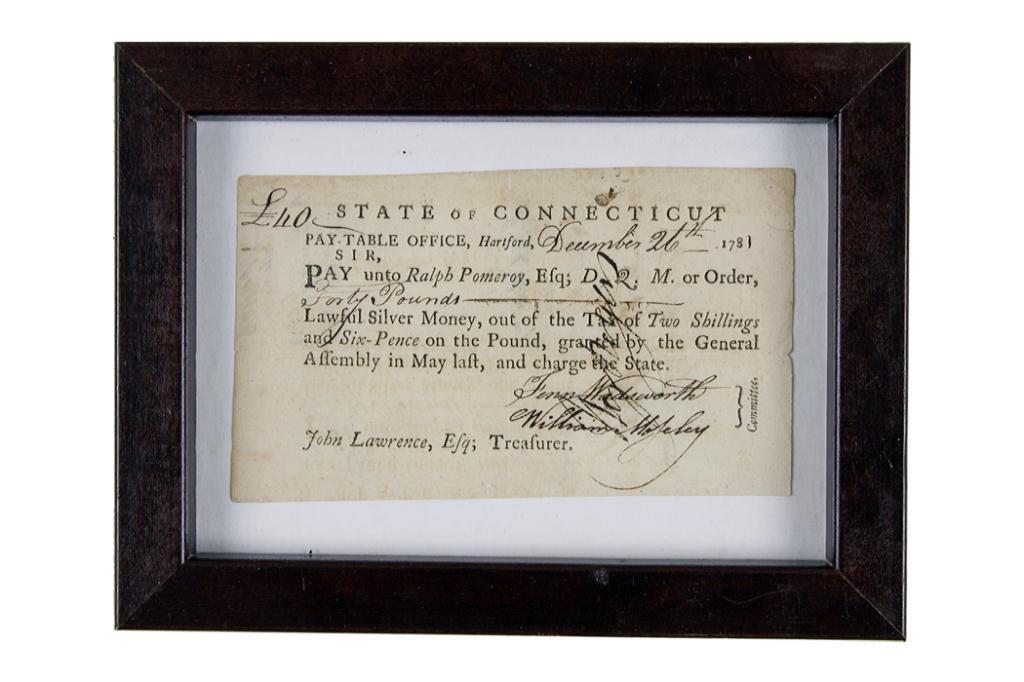 £40 STATE OF CONNECTICUT
PAY-TABLE OFFICE, Hartford, December 26th 1781
SIR,
PAY unto Ralph Pomeroy, Eſq; D. Q. M. or Order,
Forty Pounds
Lawful Silver Money, out of the Tax of Two Shillings
and Six-Pence on the Pound, granted by the General
Aſſembly in May laſt, and charge the State.
Fenn Wadsworth
William Moseley
Committee.
John Lawrence, Eſq; Treaſurer.